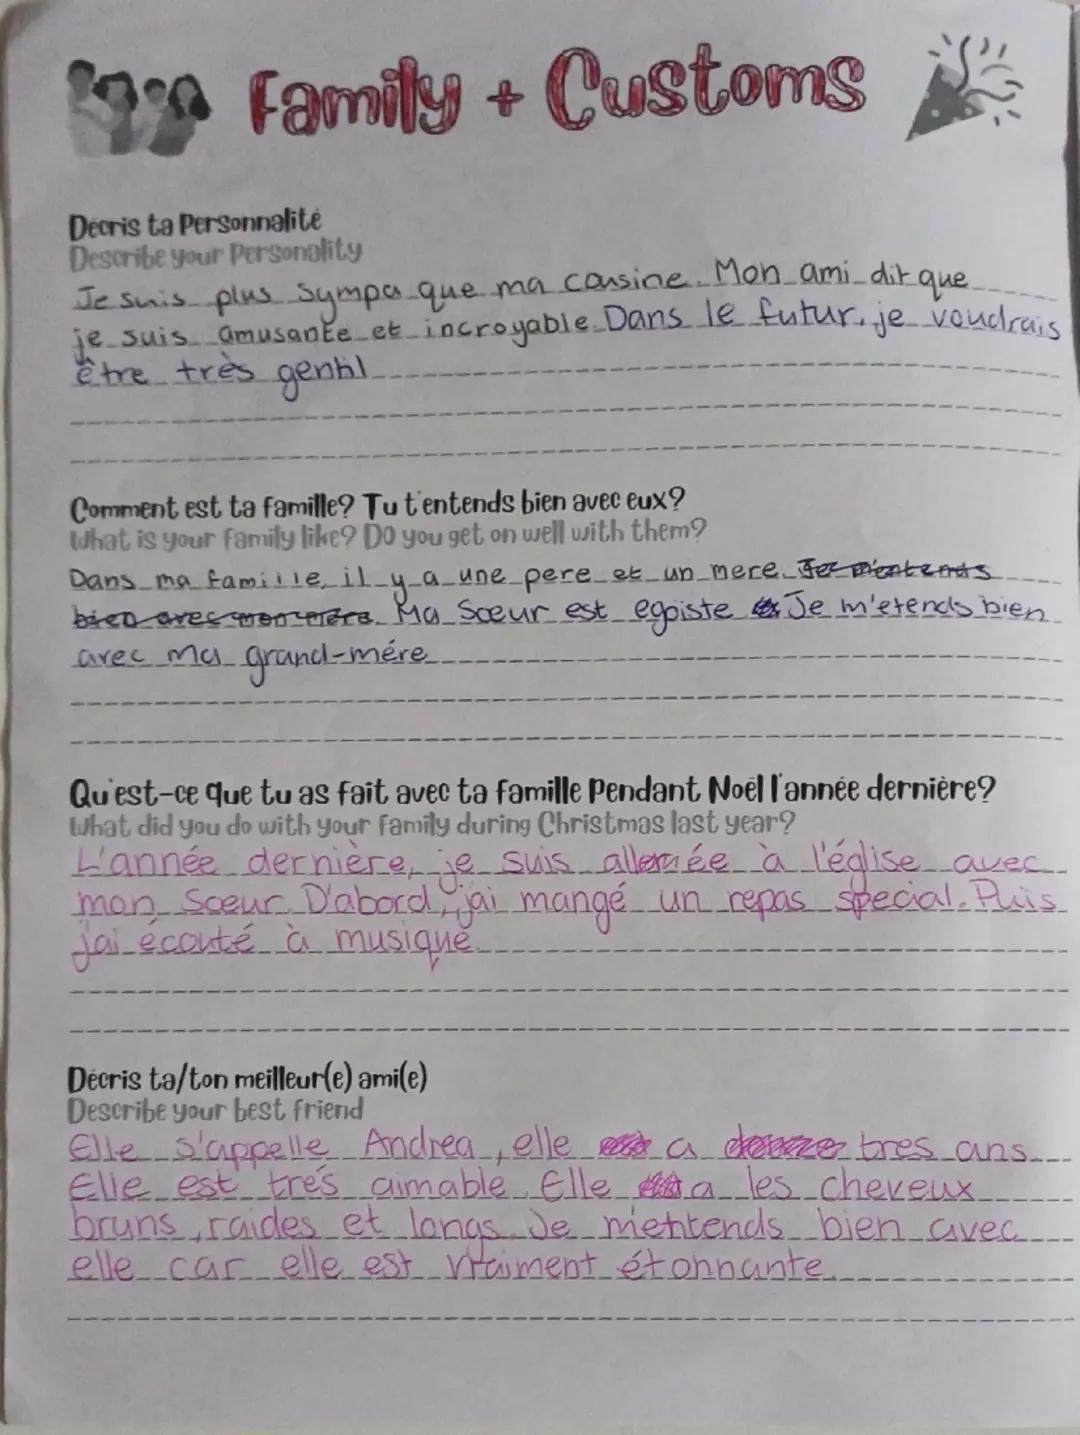 Family + Customs
Décris ta Personnalité
Describe your Personality
Je suis plus sympa que ma cousine. Mon ami dit que
je suis amusante et incroyable. Dans le futur, je voudrais
être très gentil
Comment est ta famille? Tu t'entends bien avec eux?
What is your family like? Do you get on well with them?
Dans ma famille, il y a une pere et un mere.
Ma Sœur est egoiste Je m'etends bien
avec ma grand-mére
Qu'est-ce que tu as fait avec ta famille Pendant Noël l'année dernière?
What did you do with your family during Christmas last year?
L'année dernière, je suis à l'église avec
mon Sœur. D'abord, j'ai mangé un repas special. Puis
j'ai écouté à musique.
Décris ta/ton meilleur(e) ami(e)
Describe your best friend
Elle s'appelle Andrea, elle a tres ans.
Elle est trés aimable. Elle a les cheveux
bruns, raides et longs. Je m'entends bien avec
elle car elle est vraiment étonnante.